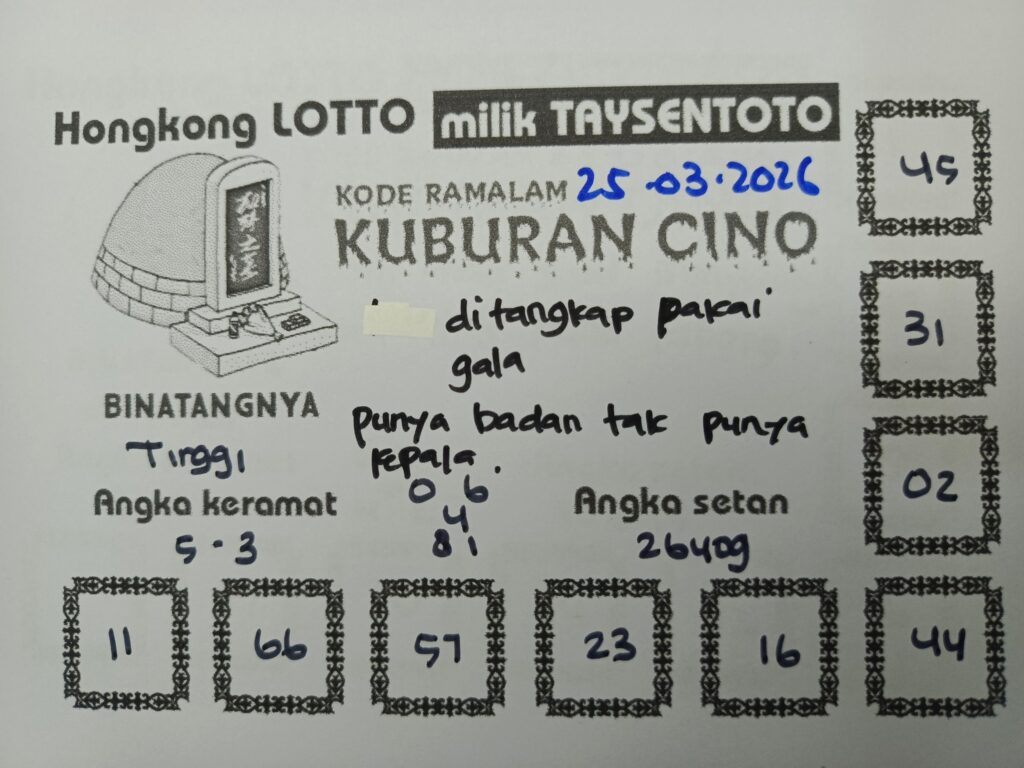 Hongkong LOTTO milik TAYSENTOTO
KODE RAMALAM 25.03.2026
KUBURAN CINO
ditangkap pakai
gala
punya badan tak punya
kepala.
BINATANGNYA
Tinggi
0 6
4
81
Angka keramat
5 - 3
Angka setan
26409
45
31
02
11 66 57 23 16 44